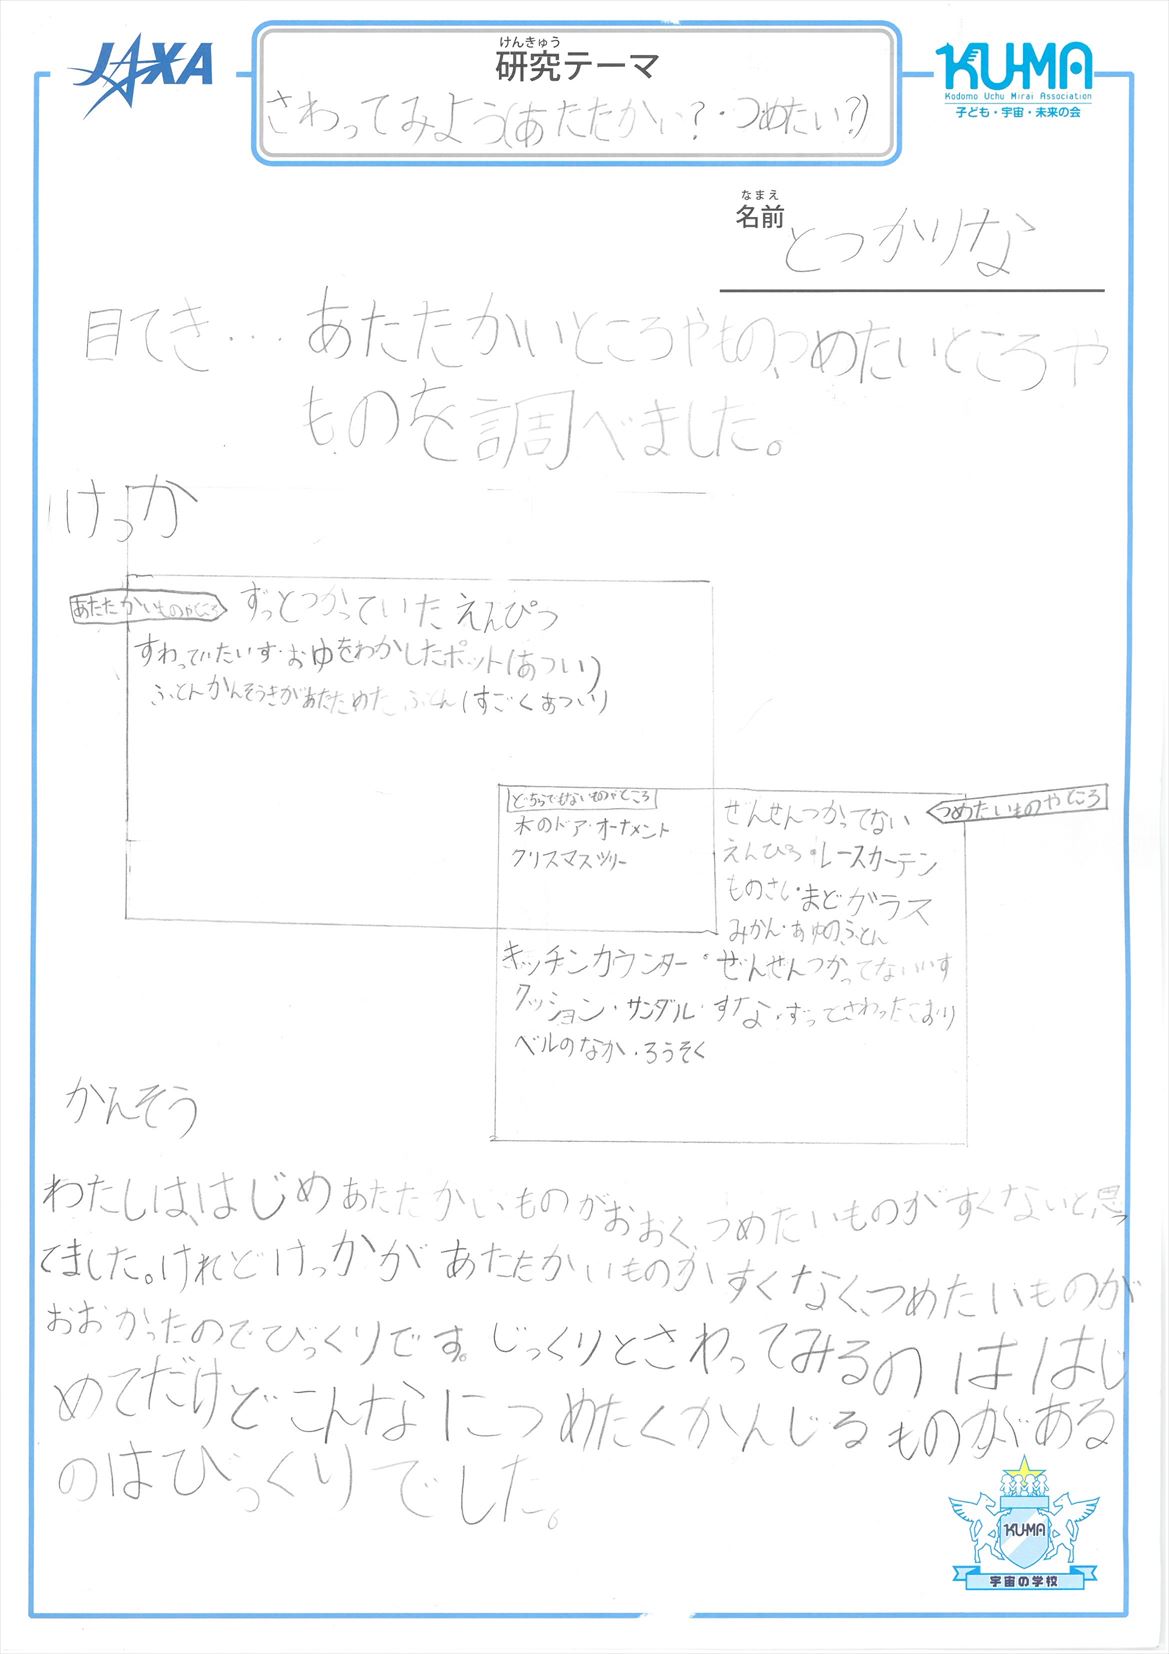 JAXA
けんきゅう
研究テーマ
さわってみよう(あたたかい?・つめたい?)
KU-MA
Kodomo Uchu Mirai Association
子ども・宇宙・未来の会
なまえ
名前
とつかりな
目てき… あたたかいところやもの、つめたいところや
ものを調べました。
けっか
あたたかいものやところ
ずっとつかっていたえんぴつ
すわっていたいす・おゆをわかしたポット(あつい)
ふとんかんそうきがあたためたふとん(すごくあつい)
どちらでもないものやところ
木のドア・オーナメント
クリスマスツリー
つめたいものやところ
ぜんせんつかってない
えんぴつ・レースカーテン
ものさし・まどガラス
みかん・あゆのふとん
キッチンカウンター・ぜんせんつかってないいす
クッション・サンダル・すな・ずっとさわったこおり
ベルのなか・ろうそく
かんそう
わたしは、はじめあたたかいものがおおく、つめたいものがすくないと思っ
てました。けれどけっかがあたたかいものがすくなく、つめたいものが
おおかったのでびっくりです。じっくりとさわってみるのははじ
めてだけどこんなにつめたくかんじるものがある
のはびっくりでした。
KU-MA
宇宙の学校